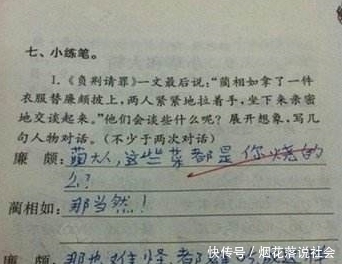 七、小练笔。
1.《负荆请罪》一文最后说:“蔺相如拿了一件
衣服替廉颇披上,两人紧紧地拉着手,坐下来亲密
地交谈起来。”他们会谈些什么呢?展开想象,写几
句人物对话。(不少于两次对话)
廉 颇:蔺大人,这些菜都是你烧的
么?
蔺相如:那当然!
廉 颇:那也难怪
快传号/烟花落说社会